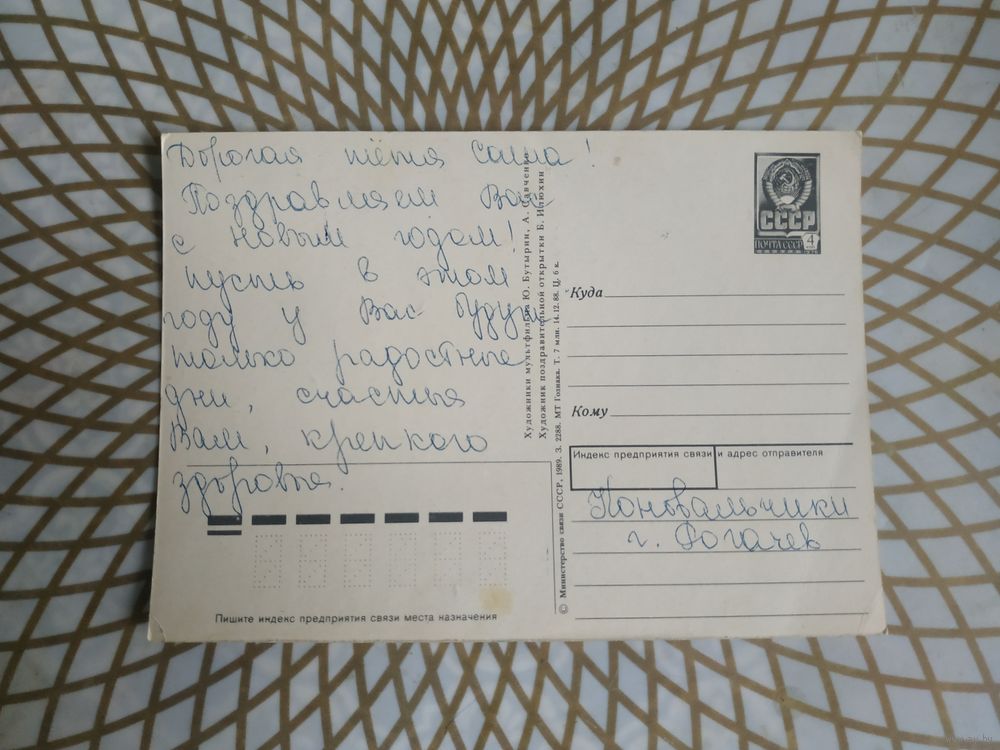 Дорогая тётя Саша!
Поздравляем Вас
с новым годом!
Пусть в этом
году у Вас будут
только радостные
дни, счастья
Вам, крепкого
здоровья.
Пишите индекс предприятия связи места назначения
Художники мультфильма Ю. Бутырин, А. Савченко
Художник поздравительной открытки Б. Илюхин
© Министерство связи СССР, 1989. З. 2288. МТ Гознака. Т. 7 млн. 14.12.88. Ц. 6 к.
СССР
ПОЧТА СССР 4
Куда
Кому
Индекс предприятия связи и адрес отправителя
Коновальчики
г. Рогачев